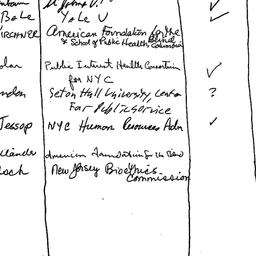 St. Johns U.
Yale U
KIRCHNER American Foundation for the Blind
& School of Public Health Columbia
Public Interest Health Consortium
for NYC
Seton Hall University, Center ?
For Public Service
Jessop NYC Human Resources Adm
American Foundation for the Blind
New Jersey Bioethics
Commission